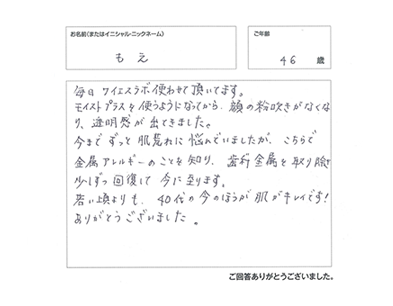 お名前(またはイニシャル・ニックネーム)
もえ
ご年齢
46 歳
毎日 ワイエスラボ 使わせて頂いてます。
モイストプラスを使うようになってから、顔の粉吹きがなくな
り、透明感が出てきました。
今までずっと肌荒れに悩んでいましたが、こちらで
金属アレルギーのことを知り、歯科金属を取り除き
少しずつ回復して今に至ります。
若い頃よりも、40代の今のほうが肌がキレイです!
ありがとうございました。
ご回答ありがとうございました。